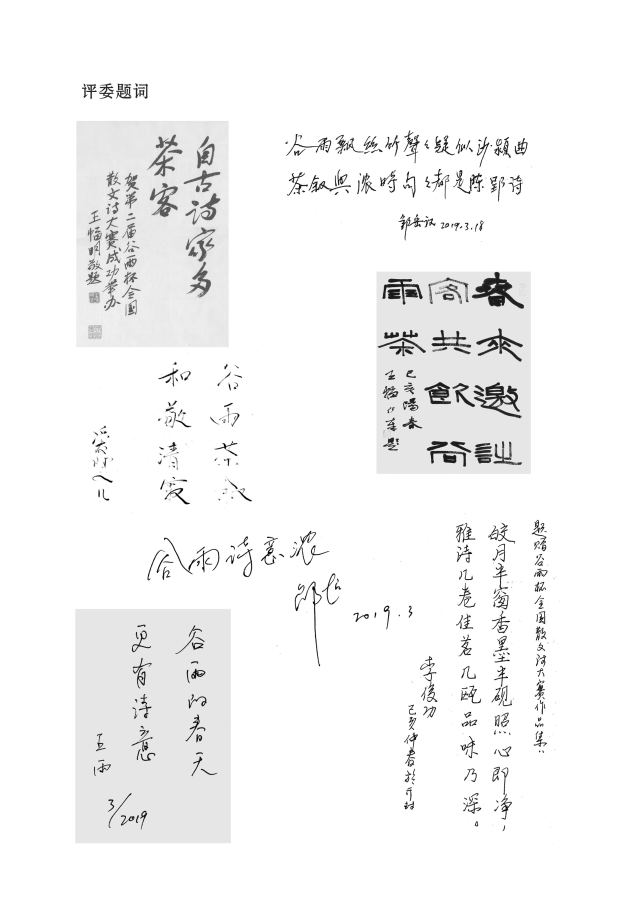 评委题词
自古诗家多
茶客
贺第二届谷雨杯全国
散文诗大赛成功举办
王幅明敬题
谷雨飘丝竹声々疑似沙颍曲
茶叙兴浓时句々都是陈郢诗
邹岳汉 2019.3.18
春来邀诗
客共饮谷
雨茶
己亥阳春
王幅明题
谷雨茶
和敬清寂
谷雨诗意浓
2019.3
题赠谷雨杯全国散文诗大赛作品集:
皎月半窗香墨半砚照心即净,
雅诗几卷佳茗几瓯品味乃深。
李俊功
己亥仲春於开封
谷雨的春天
更有诗意
王雨
3/2019